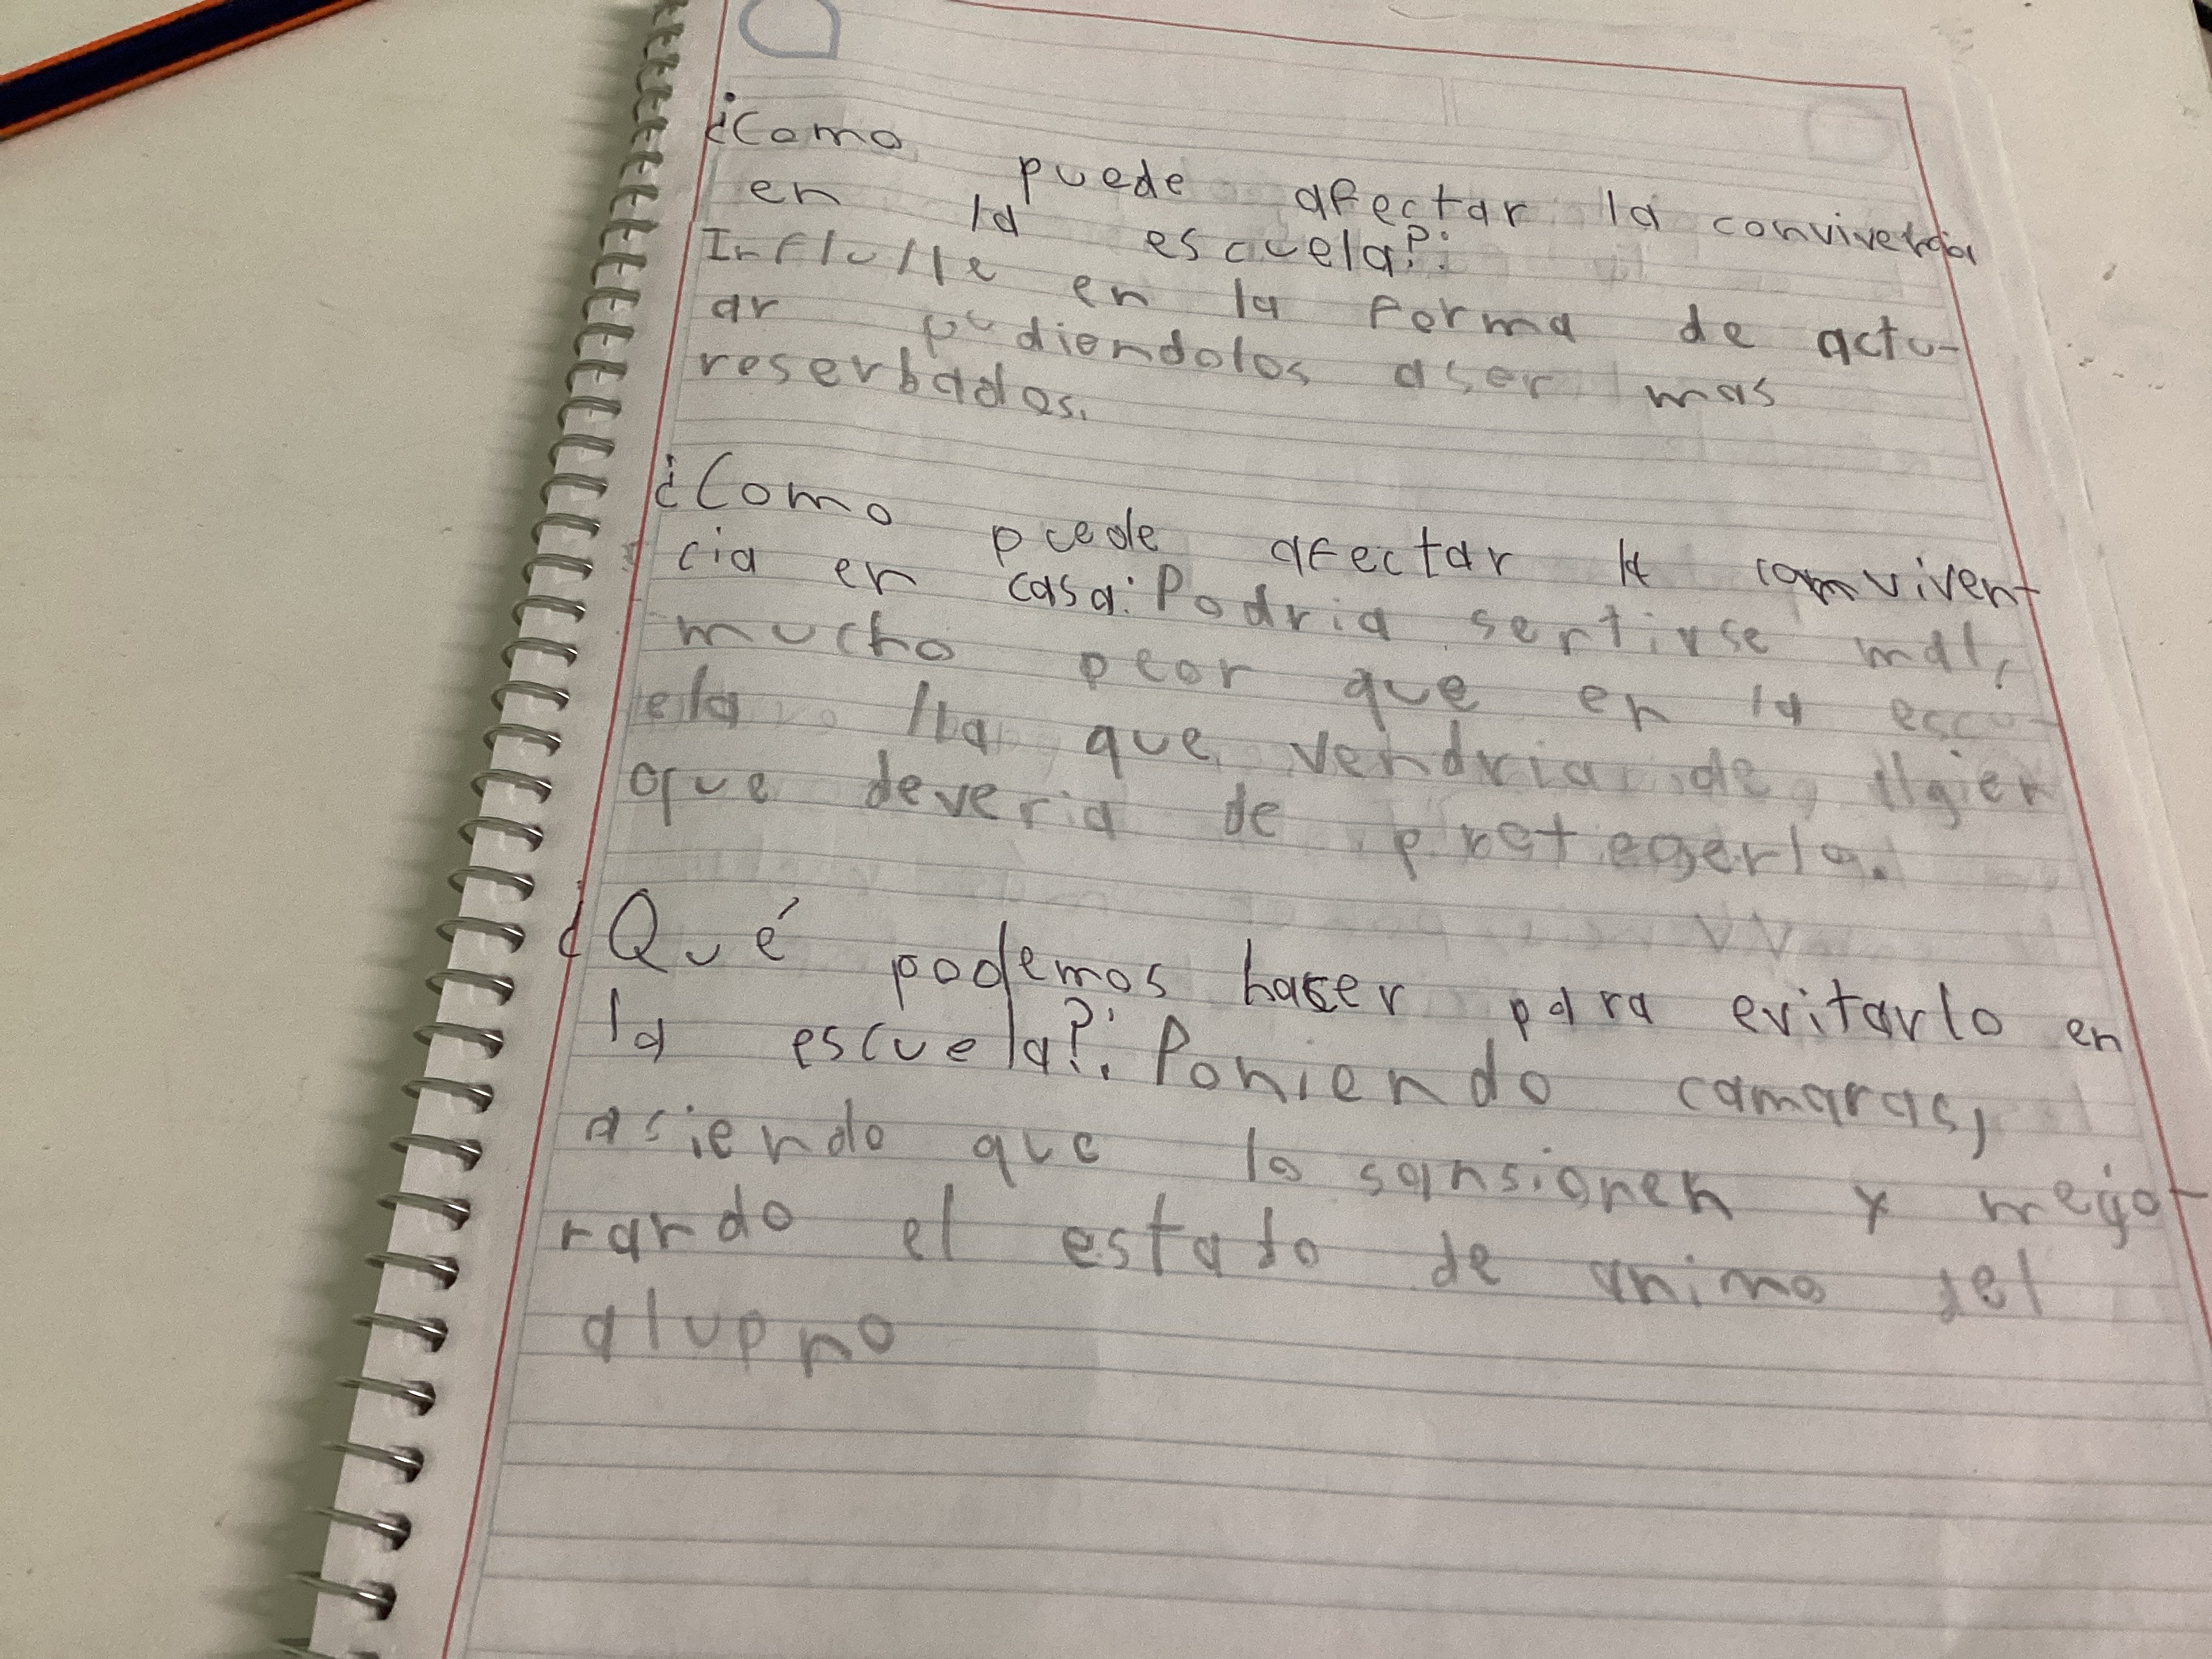 ¿Como puede afectar la convivencia
en la escuela?:
Influlle en la forma de actu-
ar pudiendolos aser mas
reserbados.
¿Como puede afectar la conviven-
cia en casa: Podria sentirse mal,
mucho peor que en la escu-
ela lla que vendria de algien
que deveria de protegerlo.
¿Qué podemos hacer para evitarlo en
la escuela?: Poniendo camaras,
asiendo que lo sansionen y mejo-
rando el estado de animo del
alupno